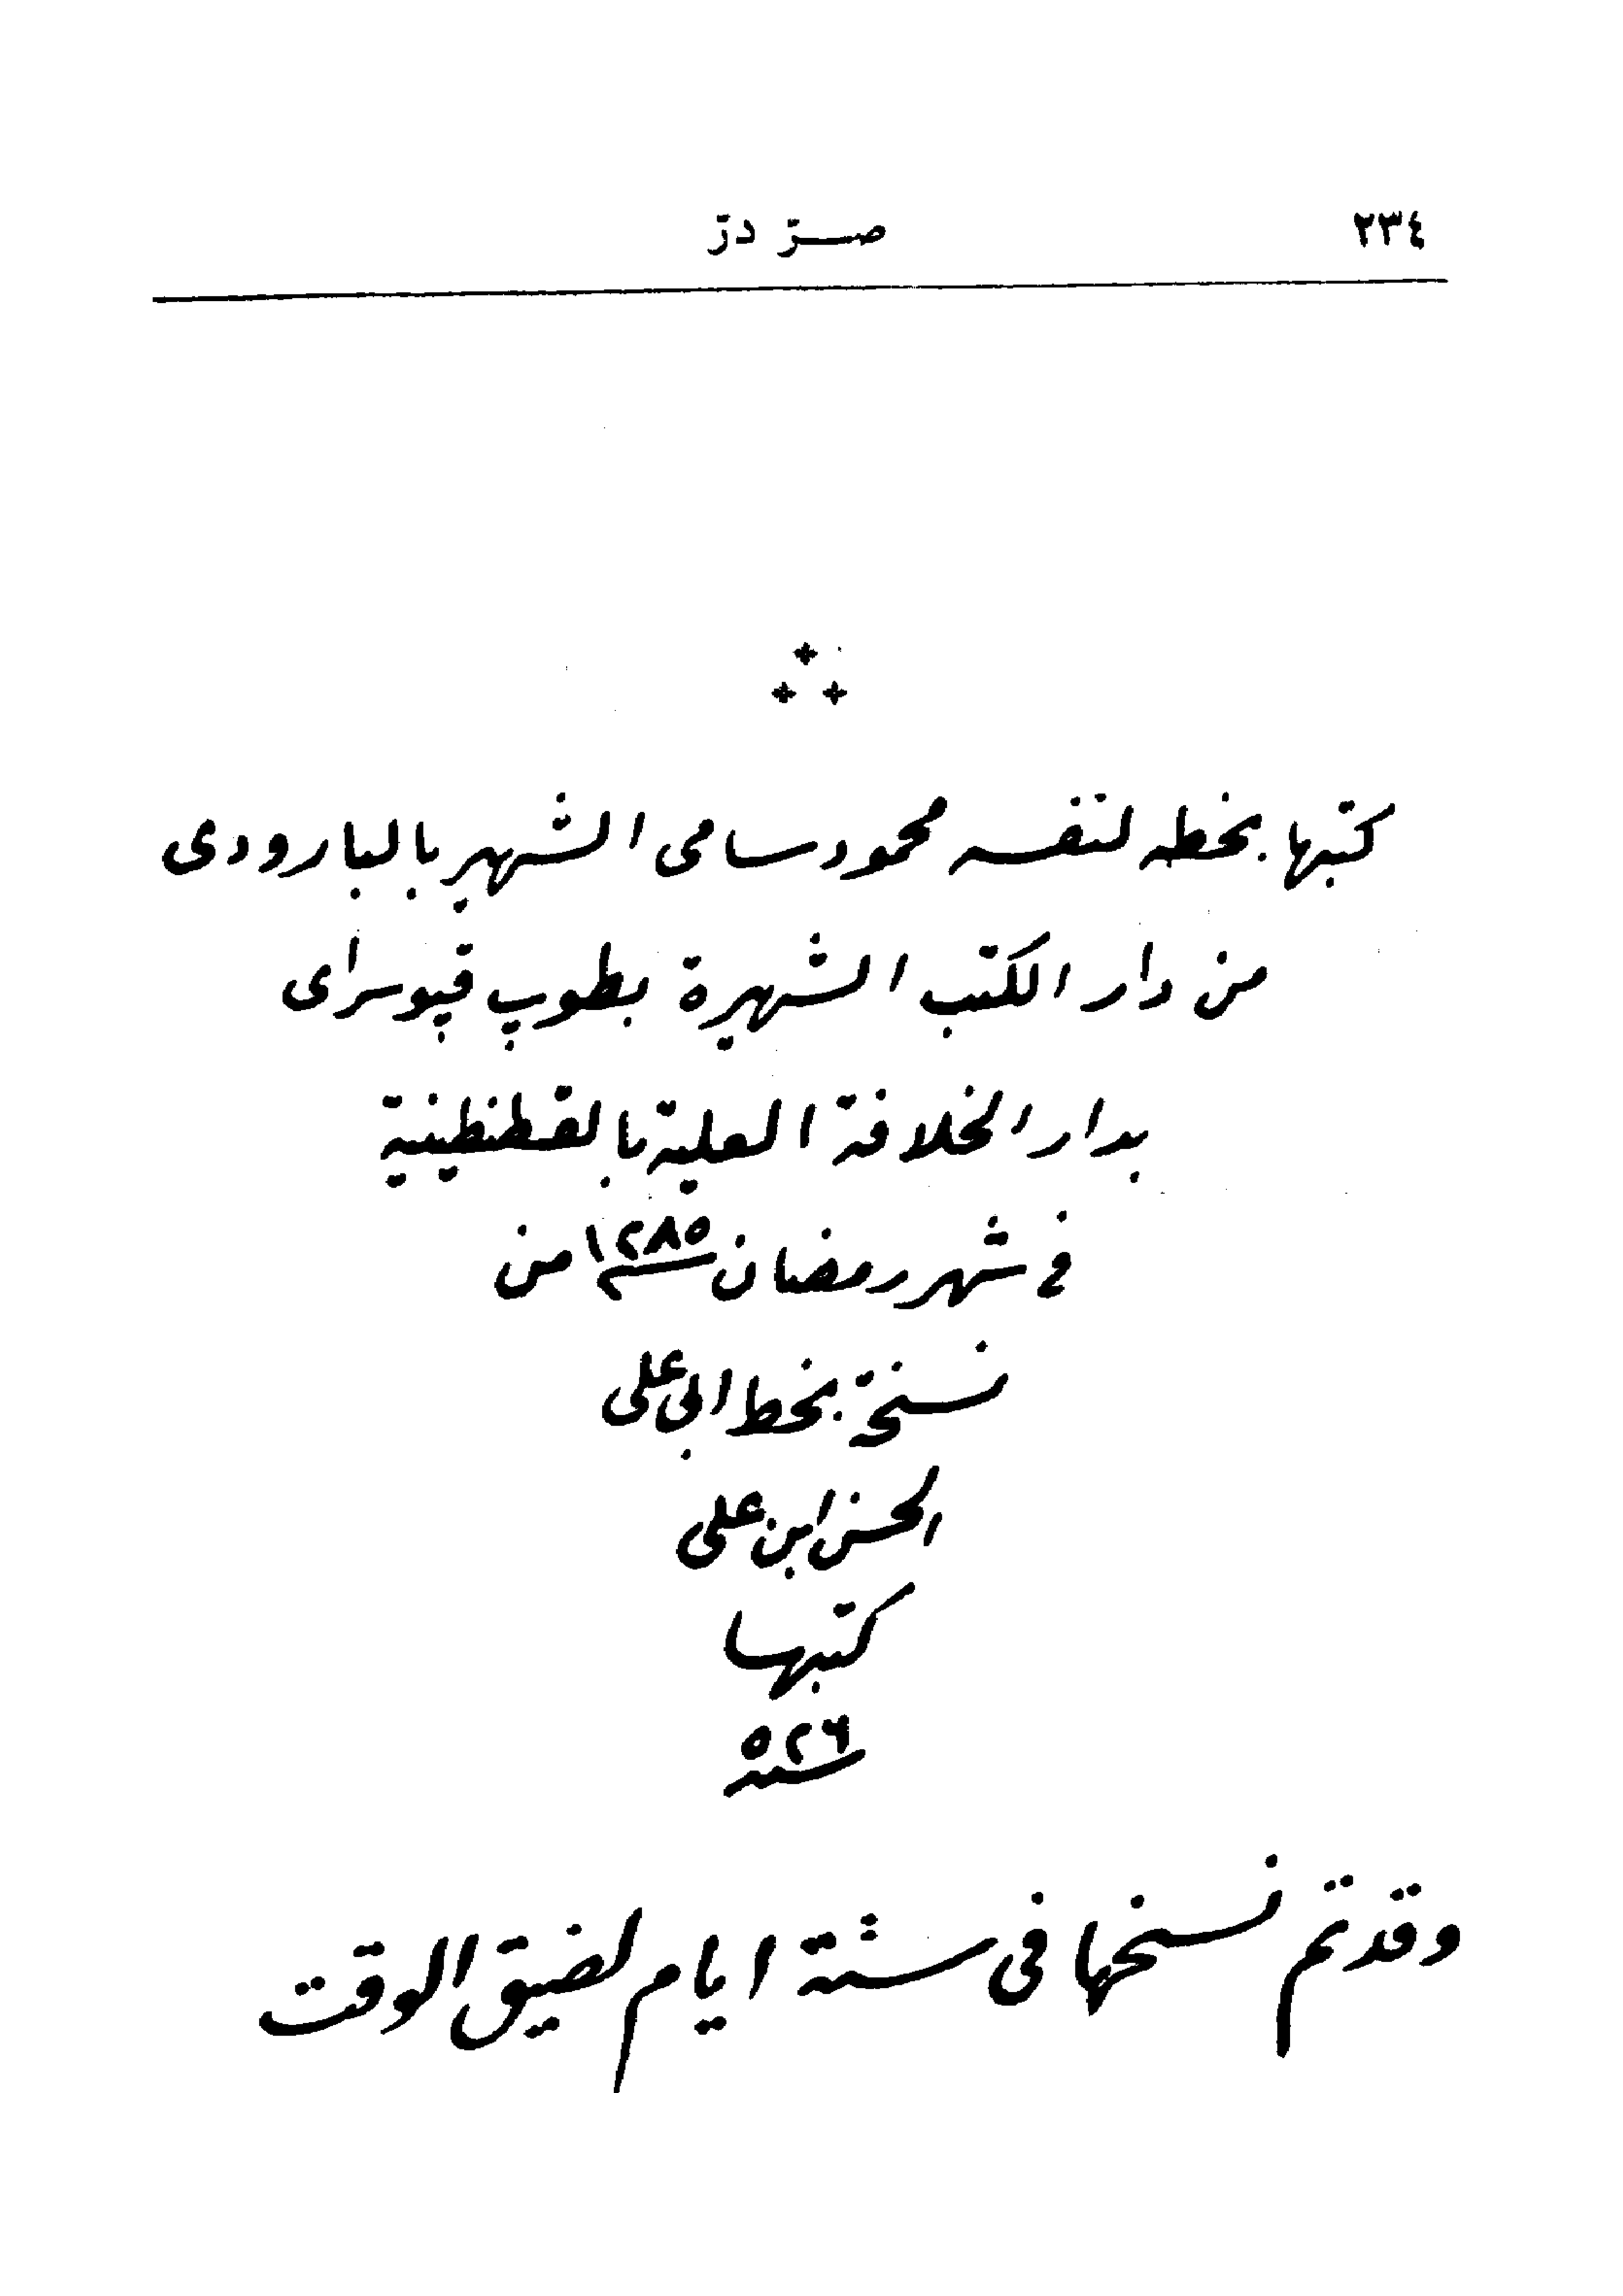 ٢٣٤ صرّ درّ
كتبها بخطه لنفسه محمود سامى الشهير بالبارودى
من دار الكتب الشهيرة بطوپ قپوسراى
بدار الخلافة العلية بالقطنطينية
فى شهر رمضان سنة ١٢٨٥ من
نسخة بخط ابى على
الحسن ابن على
كتبها
سنة ٥٢٦
وقد تم نسخها فى ستة ايام لضيق الوقت